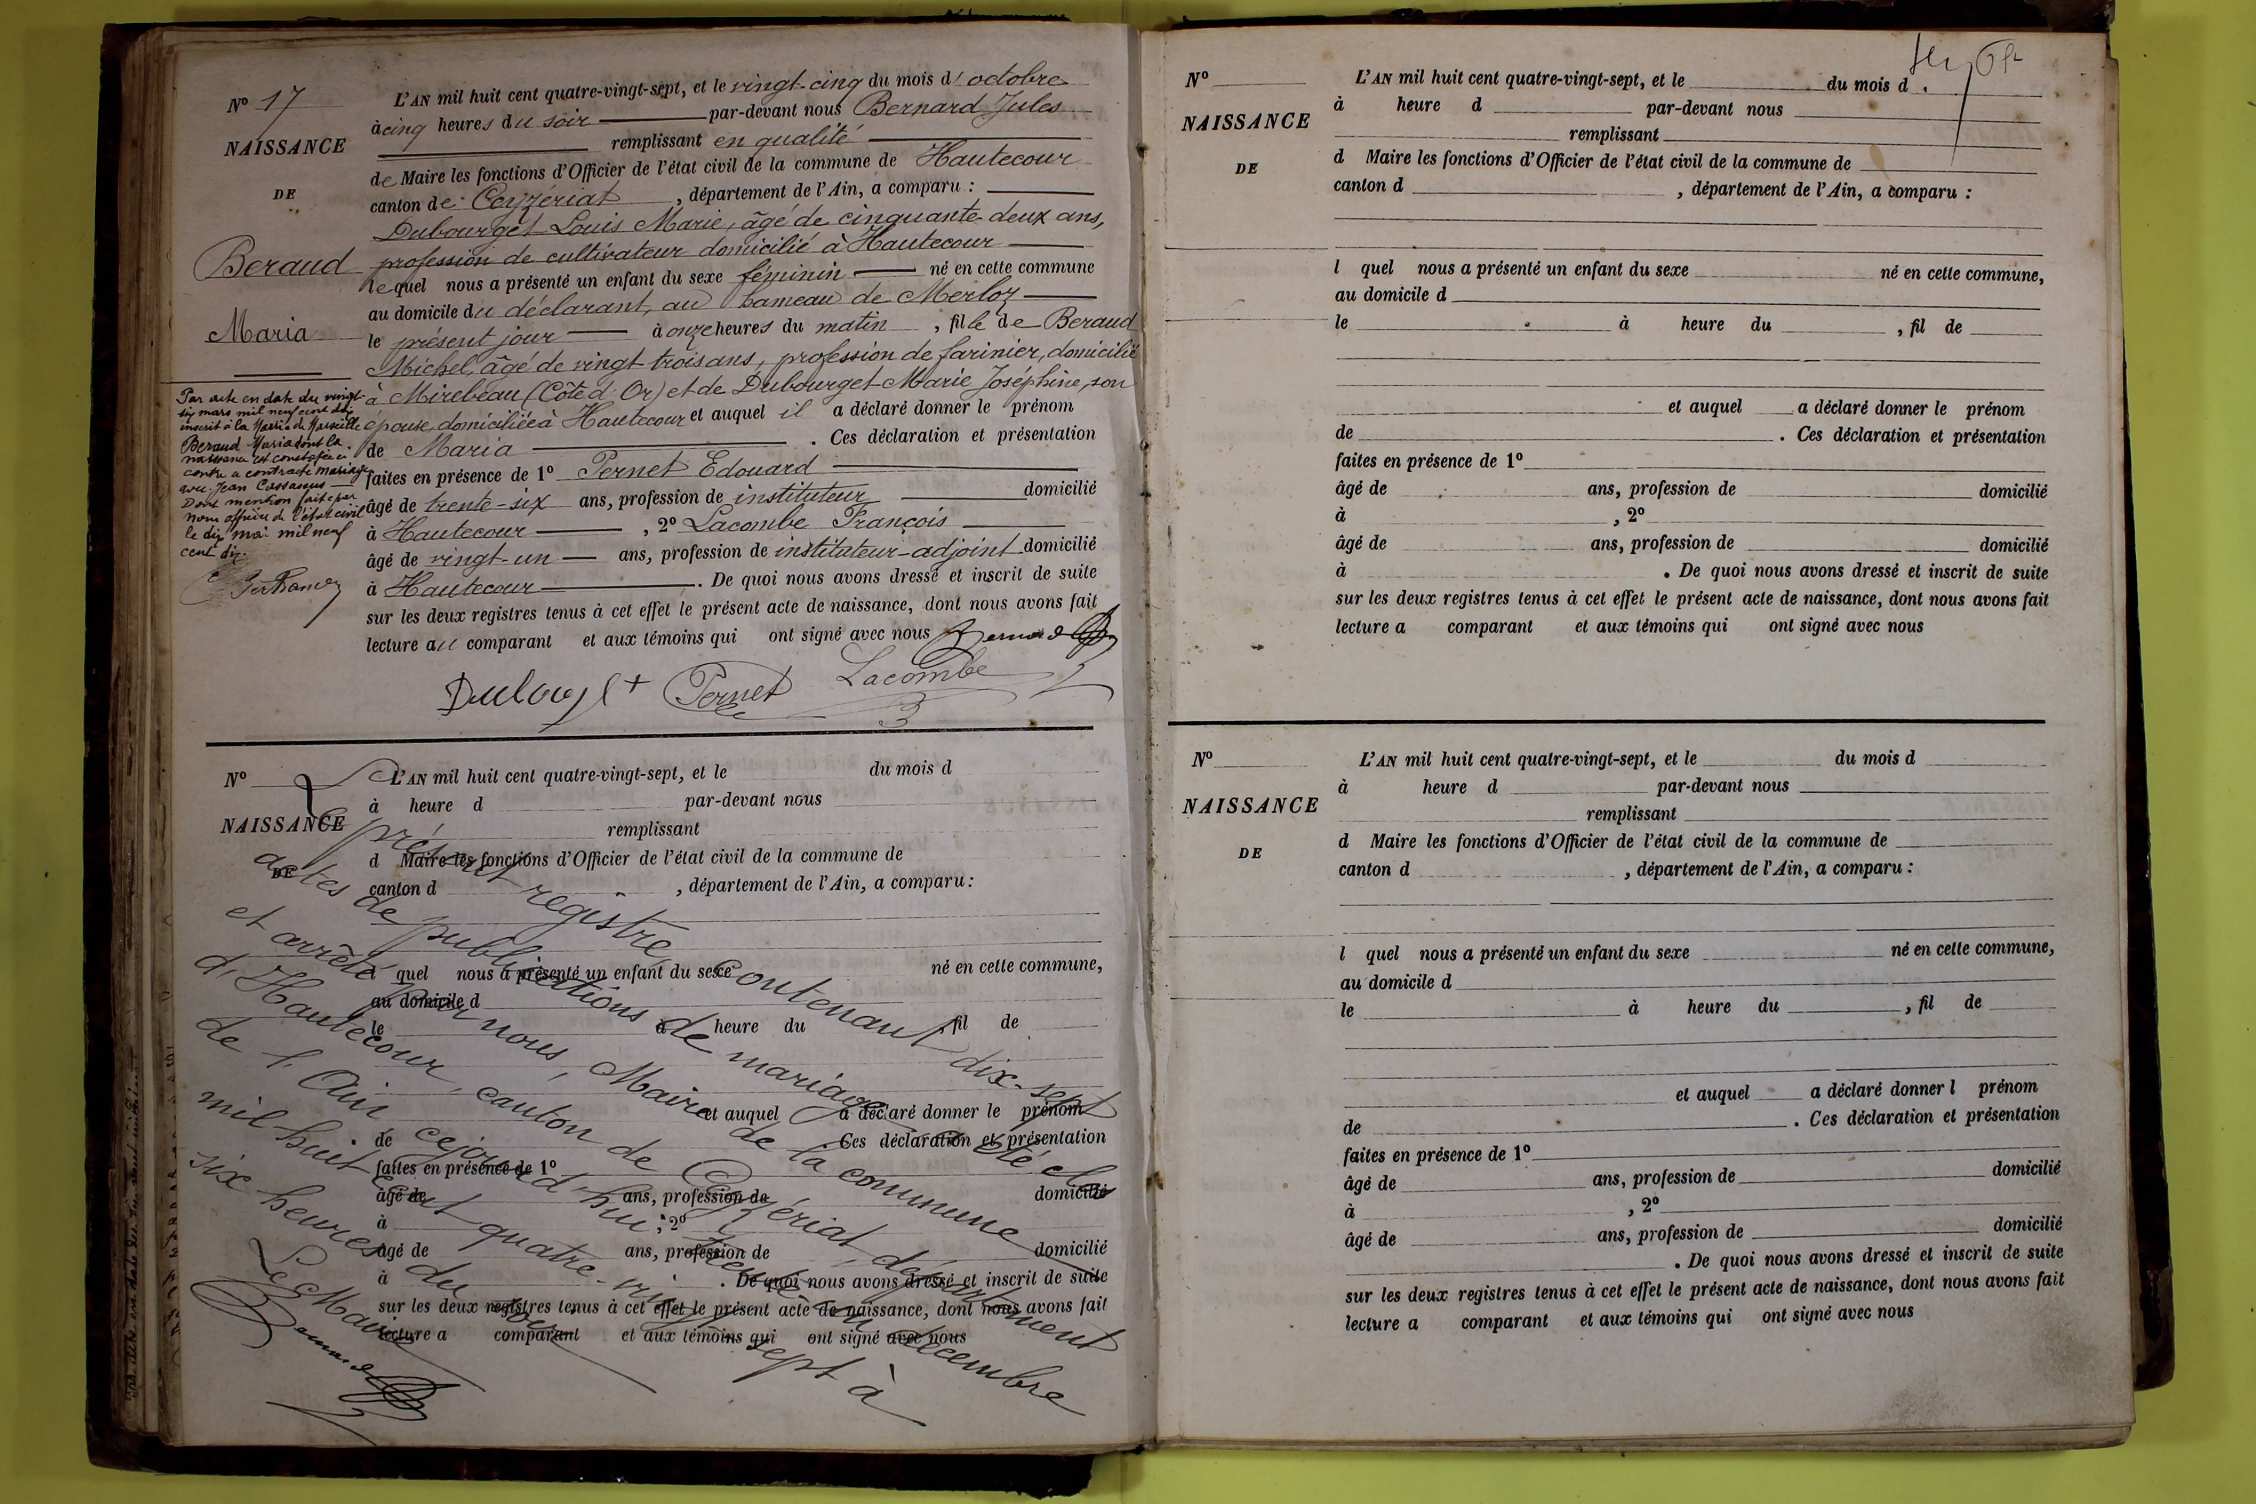 N° 17
NAISSANCE
DE
Beraud
Maria
L'AN mil huit cent quatre-vingt-sept, et le vingt-cinq du mois d' octobre
à cinq heures du soir par-devant nous Bernard Jules
remplissant en qualité
de Maire les fonctions d'Officier de l'état civil de la commune de Hautecour
canton de Ceyzériat, département de l'Ain, a comparu :
Dubourget Louis Marie, âgé de cinquante-deux ans,
profession de cultivateur domicilié à Hautecour
lequel nous a présenté un enfant du sexe féminin né en cette commune
au domicile du déclarant, au hameau de Merloz
le présent jour à onze heures du matin, fille de Beraud
Michel, âgé de vingt trois ans, profession de farinier, domicilié
à Mirebeau (Côte d'Or) et de Dubourget Marie Joséphine, son
épouse, domiciliée à Hautecour et auquel il a déclaré donner le prénom
de Maria . Ces déclaration et présentation
faites en présence de 1° Pernet Edouard
âgé de trente-six ans, profession de instituteur domicilié
à Hautecour , 2° Lacombe François
âgé de vingt-un ans, profession de instituteur-adjoint domicilié
à Hautecour . De quoi nous avons dressé et inscrit de suite
sur les deux registres tenus à cet effet le présent acte de naissance, dont nous avons fait
lecture au comparant et aux témoins qui ont signé avec nous Bernard
Dubourget Pernet Lacombe
Par acte en date du vingt-
six mars mil neuf cent dix
inscrit à la Mairie de Marseille
Beraud Maria dont la
naissance est constatée ci
contre a contracté mariage
avec Jean Cassasus
Dont mention faite par
nous officier de l'état civil
le dix mai mil neuf
cent dix.
N°
NAISSANCE
DE
L'AN mil huit cent quatre-vingt-sept, et le du mois d
à heure d par-devant nous
remplissant
d Maire les fonctions d'Officier de l'état civil de la commune de
canton d , département de l'Ain, a comparu :
l quel nous a présenté un enfant du sexe né en cette commune,
au domicile d
le à heure du , fil de
et auquel a déclaré donner le prénom
de . Ces déclaration et présentation
faites en présence de 1°
âgé de ans, profession de domicilié
à , 2°
âgé de ans, profession de domicilié
à . De quoi nous avons dressé et inscrit de suite
sur les deux registres tenus à cet effet le présent acte de naissance, dont nous avons fait
lecture a comparant et aux témoins qui ont signé avec nous
Le présent registre, contenant dix-sept
actes de publications de mariage a été clos
et arrêté par nous, Maire de la commune
d'Hautecour, canton de Ceyzériat, département
de l'Ain cejourd'hui trente un décembre
mil-huit cent quatre-vingt sept à
six heures du soir
Le Maire
Bernard
N°
NAISSANCE
DE
L'AN mil huit cent quatre-vingt-sept, et le du mois d
à heure d par-devant nous
remplissant
d Maire les fonctions d'Officier de l'état civil de la commune de
canton d , département de l'Ain, a comparu :
l quel nous a présenté un enfant du sexe né en cette commune,
au domicile d
le à heure du , fil de
et auquel a déclaré donner le prénom
de . Ces déclaration et présentation
faites en présence de 1°
âgé de ans, profession de domicilié
à , 2°
âgé de ans, profession de domicilié
à . De quoi nous avons dressé et inscrit de suite
sur les deux registres tenus à cet effet le présent acte de naissance, dont nous avons fait
lecture a comparant et aux témoins qui ont signé avec nous
N°
NAISSANCE
DE
L'AN mil huit cent quatre-vingt-sept, et le du mois d
à heure d par-devant nous
remplissant
d Maire les fonctions d'Officier de l'état civil de la commune de
canton d , département de l'Ain, a comparu :
l quel nous a présenté un enfant du sexe né en cette commune,
au domicile d
le à heure du , fil de
et auquel a déclaré donner l prénom
de . Ces déclaration et présentation
faites en présence de 1°
âgé de ans, profession de domicilié
à , 2°
âgé de ans, profession de domicilié
. De quoi nous avons dressé et inscrit de suite
sur les deux registres tenus à cet effet le présent acte de naissance, dont nous avons fait
lecture a comparant et aux témoins qui ont signé avec nous